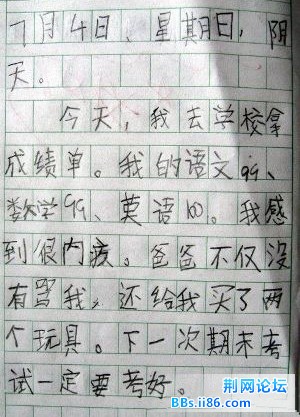 7月4日、星期日，阴
天。
今天，我去学校拿
成绩单。我的语文99、
数学99、英语100。我感
到很内疚。爸爸不仅没
有骂我，还给我买了两
个玩具。下一次期末考
试一定要考好。
荆网论坛
BBs.ii86.com